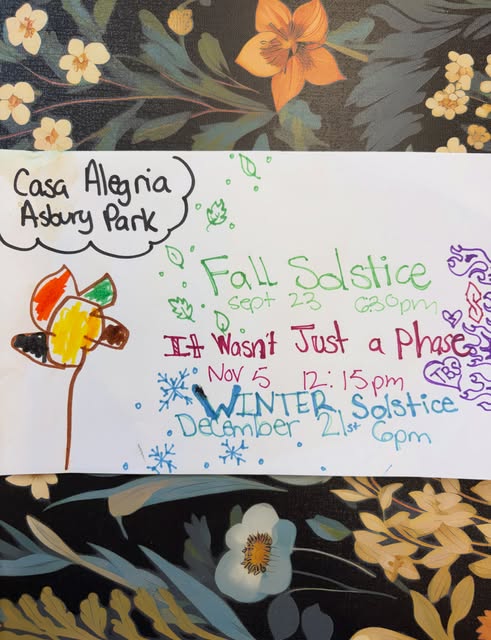 Casa Alegria
Asbury Park
Fall Solstice
Sept 23 630pm
It Wasn't Just a Phase
Nov 5 12:15pm
WINTER Solstice
December 21st 6pm